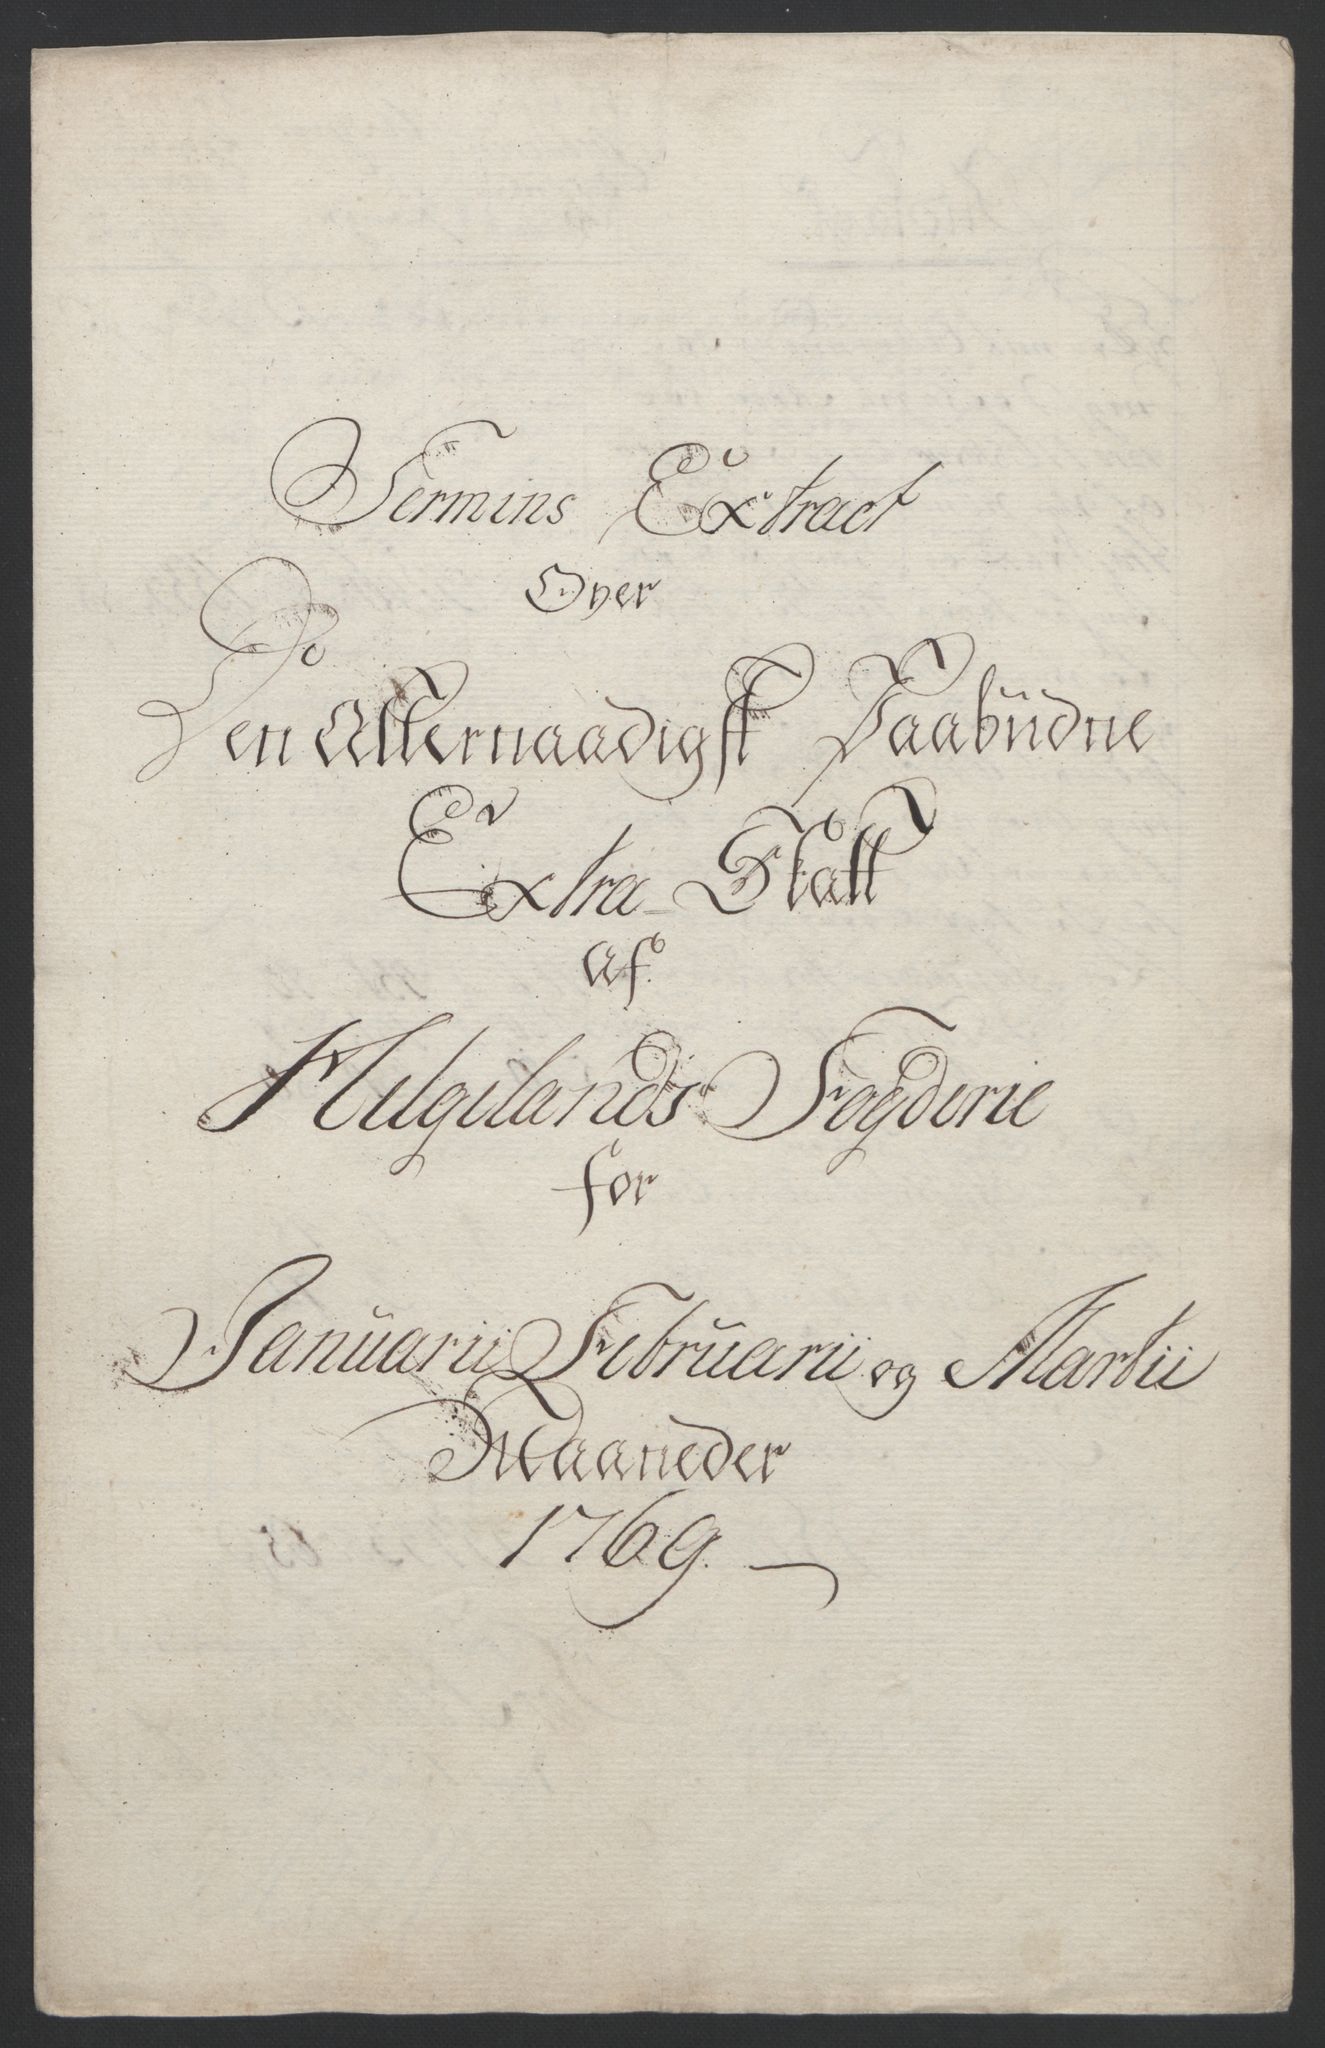 Termins Extract
Over
Den Allernaadigst Paabüdne
Extra-Skatt
af
Helgelands Fogderie
for
Januarii, Februarii og Martii
Maaneder
1769.